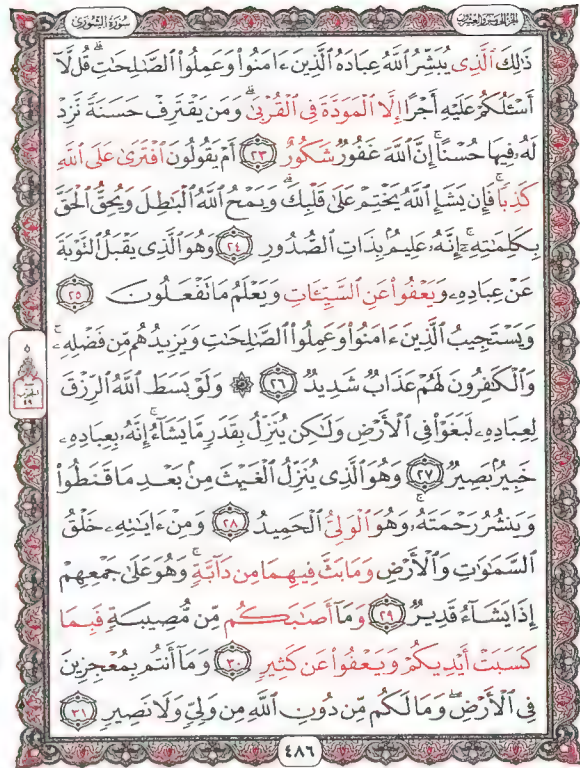 الجزء الخامس والعشرون
سُورَةُ الشُّورَىٰ
ذَٰلِكَ ٱلَّذِى يُبَشِّرُ ٱللَّهُ عِبَادَهُ ٱلَّذِينَ ءَامَنُوا۟ وَعَمِلُوا۟ ٱلصَّٰلِحَٰتِ ۗ قُل لَّآ
أَسْـَٔلُكُمْ عَلَيْهِ أَجْرًا إِلَّا ٱلْمَوَدَّةَ فِى ٱلْقُرْبَىٰ ۗ وَمَن يَقْتَرِفْ حَسَنَةً نَّزِدْ
لَهُۥ فِيهَا حُسْنًا ۚ إِنَّ ٱللَّهَ غَفُورٌ شَكُورٌ ٢٣ أَمْ يَقُولُونَ ٱفْتَرَىٰ عَلَى ٱللَّهِ
كَذِبًا ۖ فَإِن يَشَإِ ٱللَّهُ يَخْتِمْ عَلَىٰ قَلْبِكَ ۗ وَيَمْحُ ٱللَّهُ ٱلْبَٰطِلَ وَيُحِقُّ ٱلْحَقَّ
بِكَلِمَٰتِهِۦٓ ۚ إِنَّهُۥ عَلِيمٌۢ بِذَاتِ ٱلصُّدُورِ ٢٤ وَهُوَ ٱلَّذِى يَقْبَلُ ٱلتَّوْبَةَ
عَنْ عِبَادِهِۦ وَيَعْفُوا۟ عَنِ ٱلسَّيِّـَٔاتِ وَيَعْلَمُ مَا تَفْعَلُونَ ٢٥
وَيَسْتَجِيبُ ٱلَّذِينَ ءَامَنُوا۟ وَعَمِلُوا۟ ٱلصَّٰلِحَٰتِ وَيَزِيدُهُم مِّن فَضْلِهِۦ ۚ
وَٱلْكَٰفِرُونَ لَهُمْ عَذَابٌ شَدِيدٌ ٢٦ ۞ وَلَوْ بَسَطَ ٱللَّهُ ٱلرِّزْقَ
لِعِبَادِهِۦ لَبَغَوْا۟ فِى ٱلْأَرْضِ وَلَٰكِن يُنَزِّلُ بِقَدَرٍ مَّا يَشَآءُ ۚ إِنَّهُۥ بِعِبَادِهِۦ
خَبِيرٌۢ بَصِيرٌ ٢٧ وَهُوَ ٱلَّذِى يُنَزِّلُ ٱلْغَيْثَ مِنۢ بَعْدِ مَا قَنَطُوا۟
وَيَنشُرُ رَحْمَتَهُۥ ۚ وَهُوَ ٱلْوَلِىُّ ٱلْحَمِيدُ ٢٨ وَمِنْ ءَايَٰتِهِۦ خَلْقُ
ٱلسَّمَٰوَٰتِ وَٱلْأَرْضِ وَمَا بَثَّ فِيهِمَا مِن دَآبَّةٍ ۚ وَهُوَ عَلَىٰ جَمْعِهِمْ
إِذَا يَشَآءُ قَدِيرٌ ٢٩ وَمَآ أَصَٰبَكُم مِّن مُّصِيبَةٍ فَبِمَا
كَسَبَتْ أَيْدِيكُمْ وَيَعْفُوا۟ عَن كَثِيرٍ ٣٠ وَمَآ أَنتُم بِمُعْجِزِينَ
فِى ٱلْأَرْضِ ۖ وَمَا لَكُم مِّن دُونِ ٱللَّهِ مِن وَلِىٍّ وَلَا نَصِيرٍ ٣١
الحزب
٤٩
٤٨٦